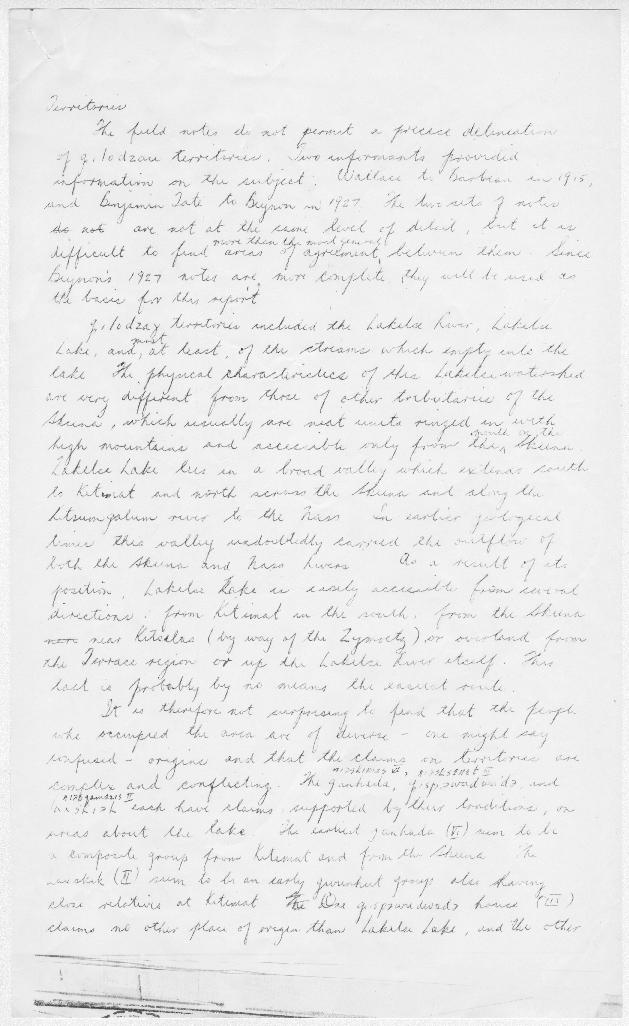 Territories
The field notes do not permit a precise delineation
of g.ilodzau territories. Two informants provided
information on the subject: Wallace to Barbeau in 1915,
and Benjamin Tate to Beynon in 1927. The two sets of notes
do not are not at the same level of detail, but it is
more than the most general
difficult to find areas of agreement between them. Since
Beynon's 1927 notes are more complete they will be used as
the basis for this report
territories included the Lakelse River, Lakelse
most
Lake, and, at least, of the streams which empty into the
lake. The physical characteristics of this Lakelse watershed
are very different from those of other tributaries of the
Skeena, which usually are neat units ringed in with
mouth on the
high mountains and accessible only from the Skeena.
Lakelse Lake lies in a broad valley which extends south
to Kitimat and north across the Skeena and along the
Kitsumgalum river to the Nass. In earlier geological
times this valley undoubtedly carried the outflow of
both the Skeena and Nass rivers. As a result of its
position, Lakelse Lake is easily accessible from several
directions: from Kitimat in the south, from the Skeena
near Kitselas (by way of the Zymoetz) or overland from
the Terrace region or up the Lakelse River itself. This
last is probably by no means the easiest route.
It is therefore not surprising to find that the people
who occupied the area are of diverse - one might say
confused - origins and that the claims on territories are
complex and conflicting. The ganhada, and
each have claims, supported by their traditions, on
areas about the lake. The earliest ganhada (VI) seem to be
a composite group from Kitimat and from the Skeena. The
(II) seem to be an early group also having
close relatives at Kitimat. The One house (III)
claims no other place of origin than Lakelse Lake, and the other